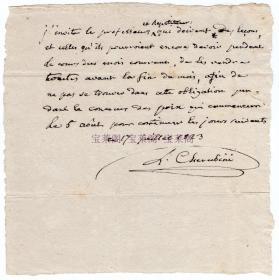 et répétiteurs
j'invite les professeurs qui doivent des leçons
et celles qu'ils pourroient encore devoir pendant
le cours du mois courant, de les rendre
toutes avant la fin du mois, afin de
ne pas se trouver dans cette obligation pen-
dant le concours des prix qui commencera
le 6 août pour continuer les jours suivants
ce 17 juillet
宝莱阁·宝莱阁·宝莱阁
L. Cherubini